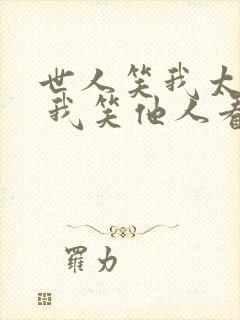 世人笑我太
我笑他人看
羅力